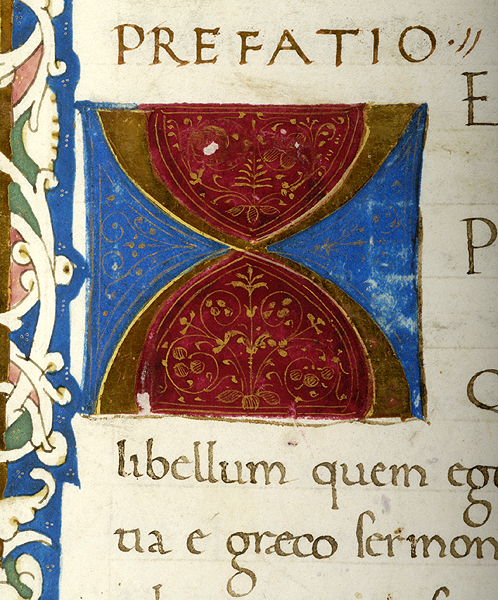 PREFATIO·//
E
X
P
libellum quem eg
tia e græco sermon